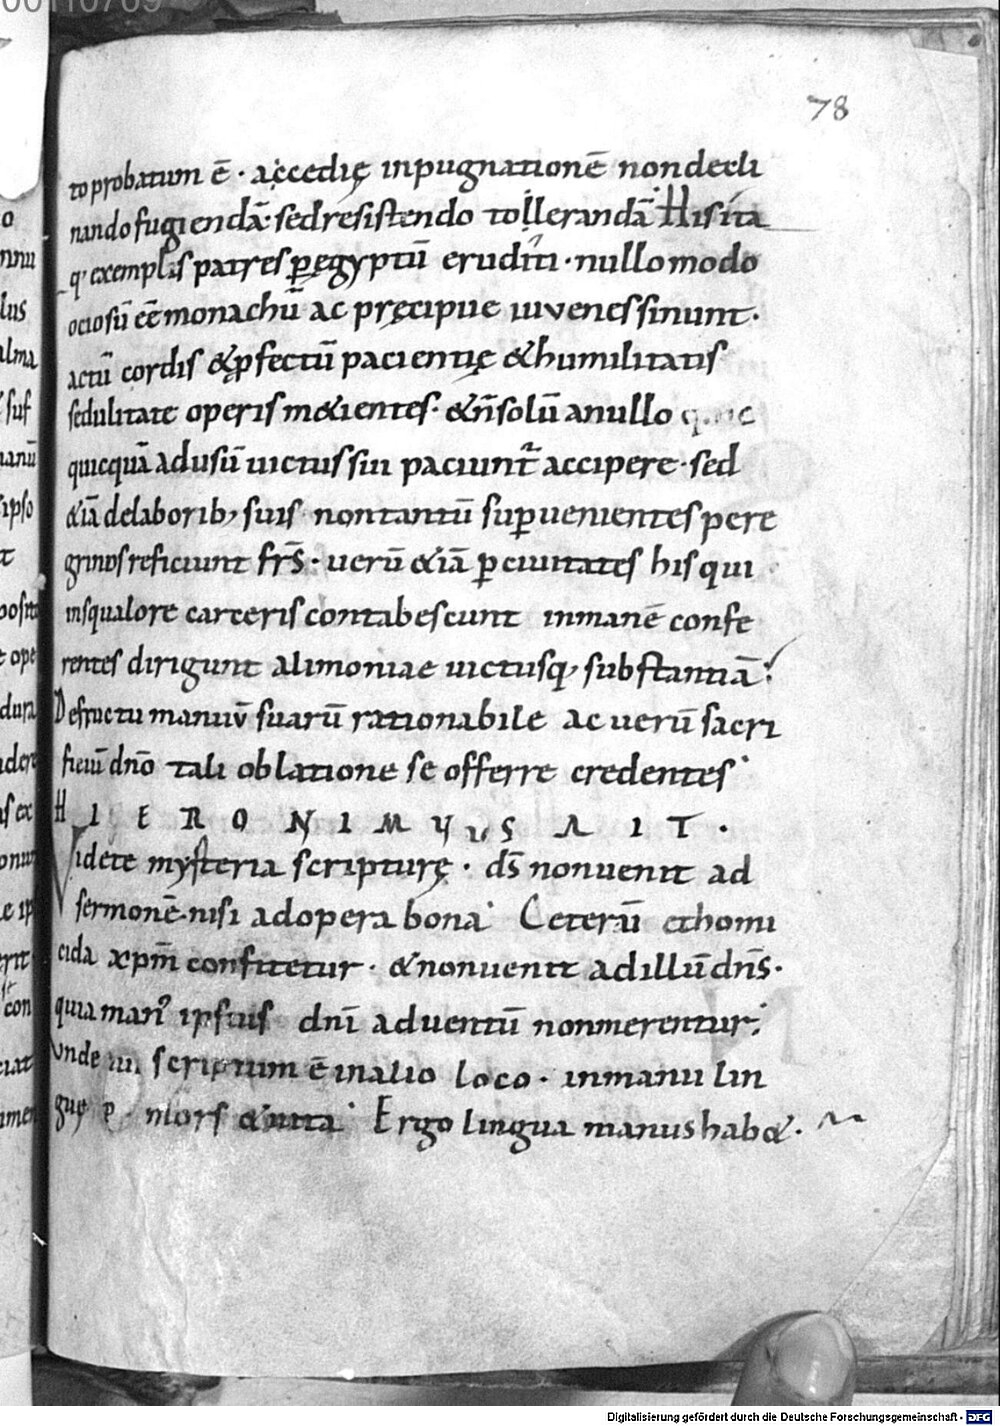 78
to probatum ē · accedię inpugnationē non decli
nando fugiendā· sed resistendo tollerandā His ita
q· exemplis patres p̲ ęgyptū eruditi · nullo modo
ociosū eē monachū ac pręcipue iuvenes sinunt·
actū cordis & p̲fectū pacientię & humilitatis
sedulitate operis m&ientes· & n̄ solū a nullo
quicquā ad usū victus sui paciunt̄ accipere · sed
&iā de laborib; suis non tantū sup̲uenientes pere
grinos reficiunt fr̄s · uerū &iā p̲ ciuitates his qui
in squalore carceris contabescunt inmanē confe
rentes dirigunt alimoniae uictusq; substantiā ·
De fructu manuū suarū rationabile ac uerū sacri
ficiū dn̄o tali oblatione se offerre credentes·
HIERONIMUS AIT ·
Videte mysteria scripturę · ds̄ non uenit ad
sermonē· nisi ad opera bona· Ceterū et homi
cida xpm̄ confitetur · & non uenit ad illū dn̄s·
quia man᾽ ipsius dn̄i aduentū non merentur;
Vnde scriptum ē in alio loco · in manu lin
guę mors & uita· Ergo lingua manus hab&·
Digitalisierung gefördert durch die Deutsche Forschungsgemeinschaft - DFG